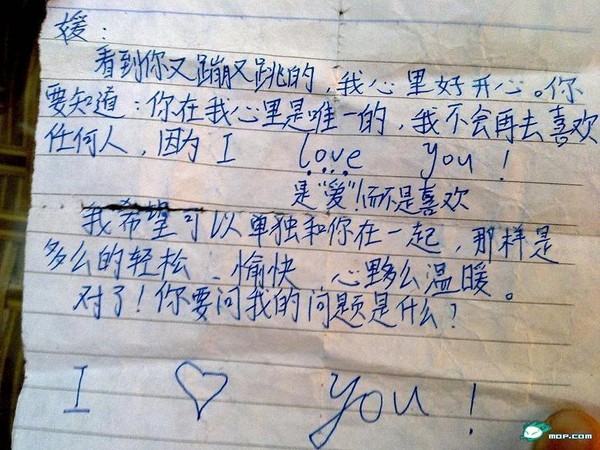 媛：
看到你又蹦又跳的，我心里好开心。你
要知道：你在我心里是唯一的，我不会再去喜欢
任何人，因为 I love you！
是“爱”！而不是喜欢
我希望可以单独和你在一起，那样是
多么的轻松、愉快、心里多么温暖。
对了！你要问我的问题是什么？
I ♡ you！
MOP.COM